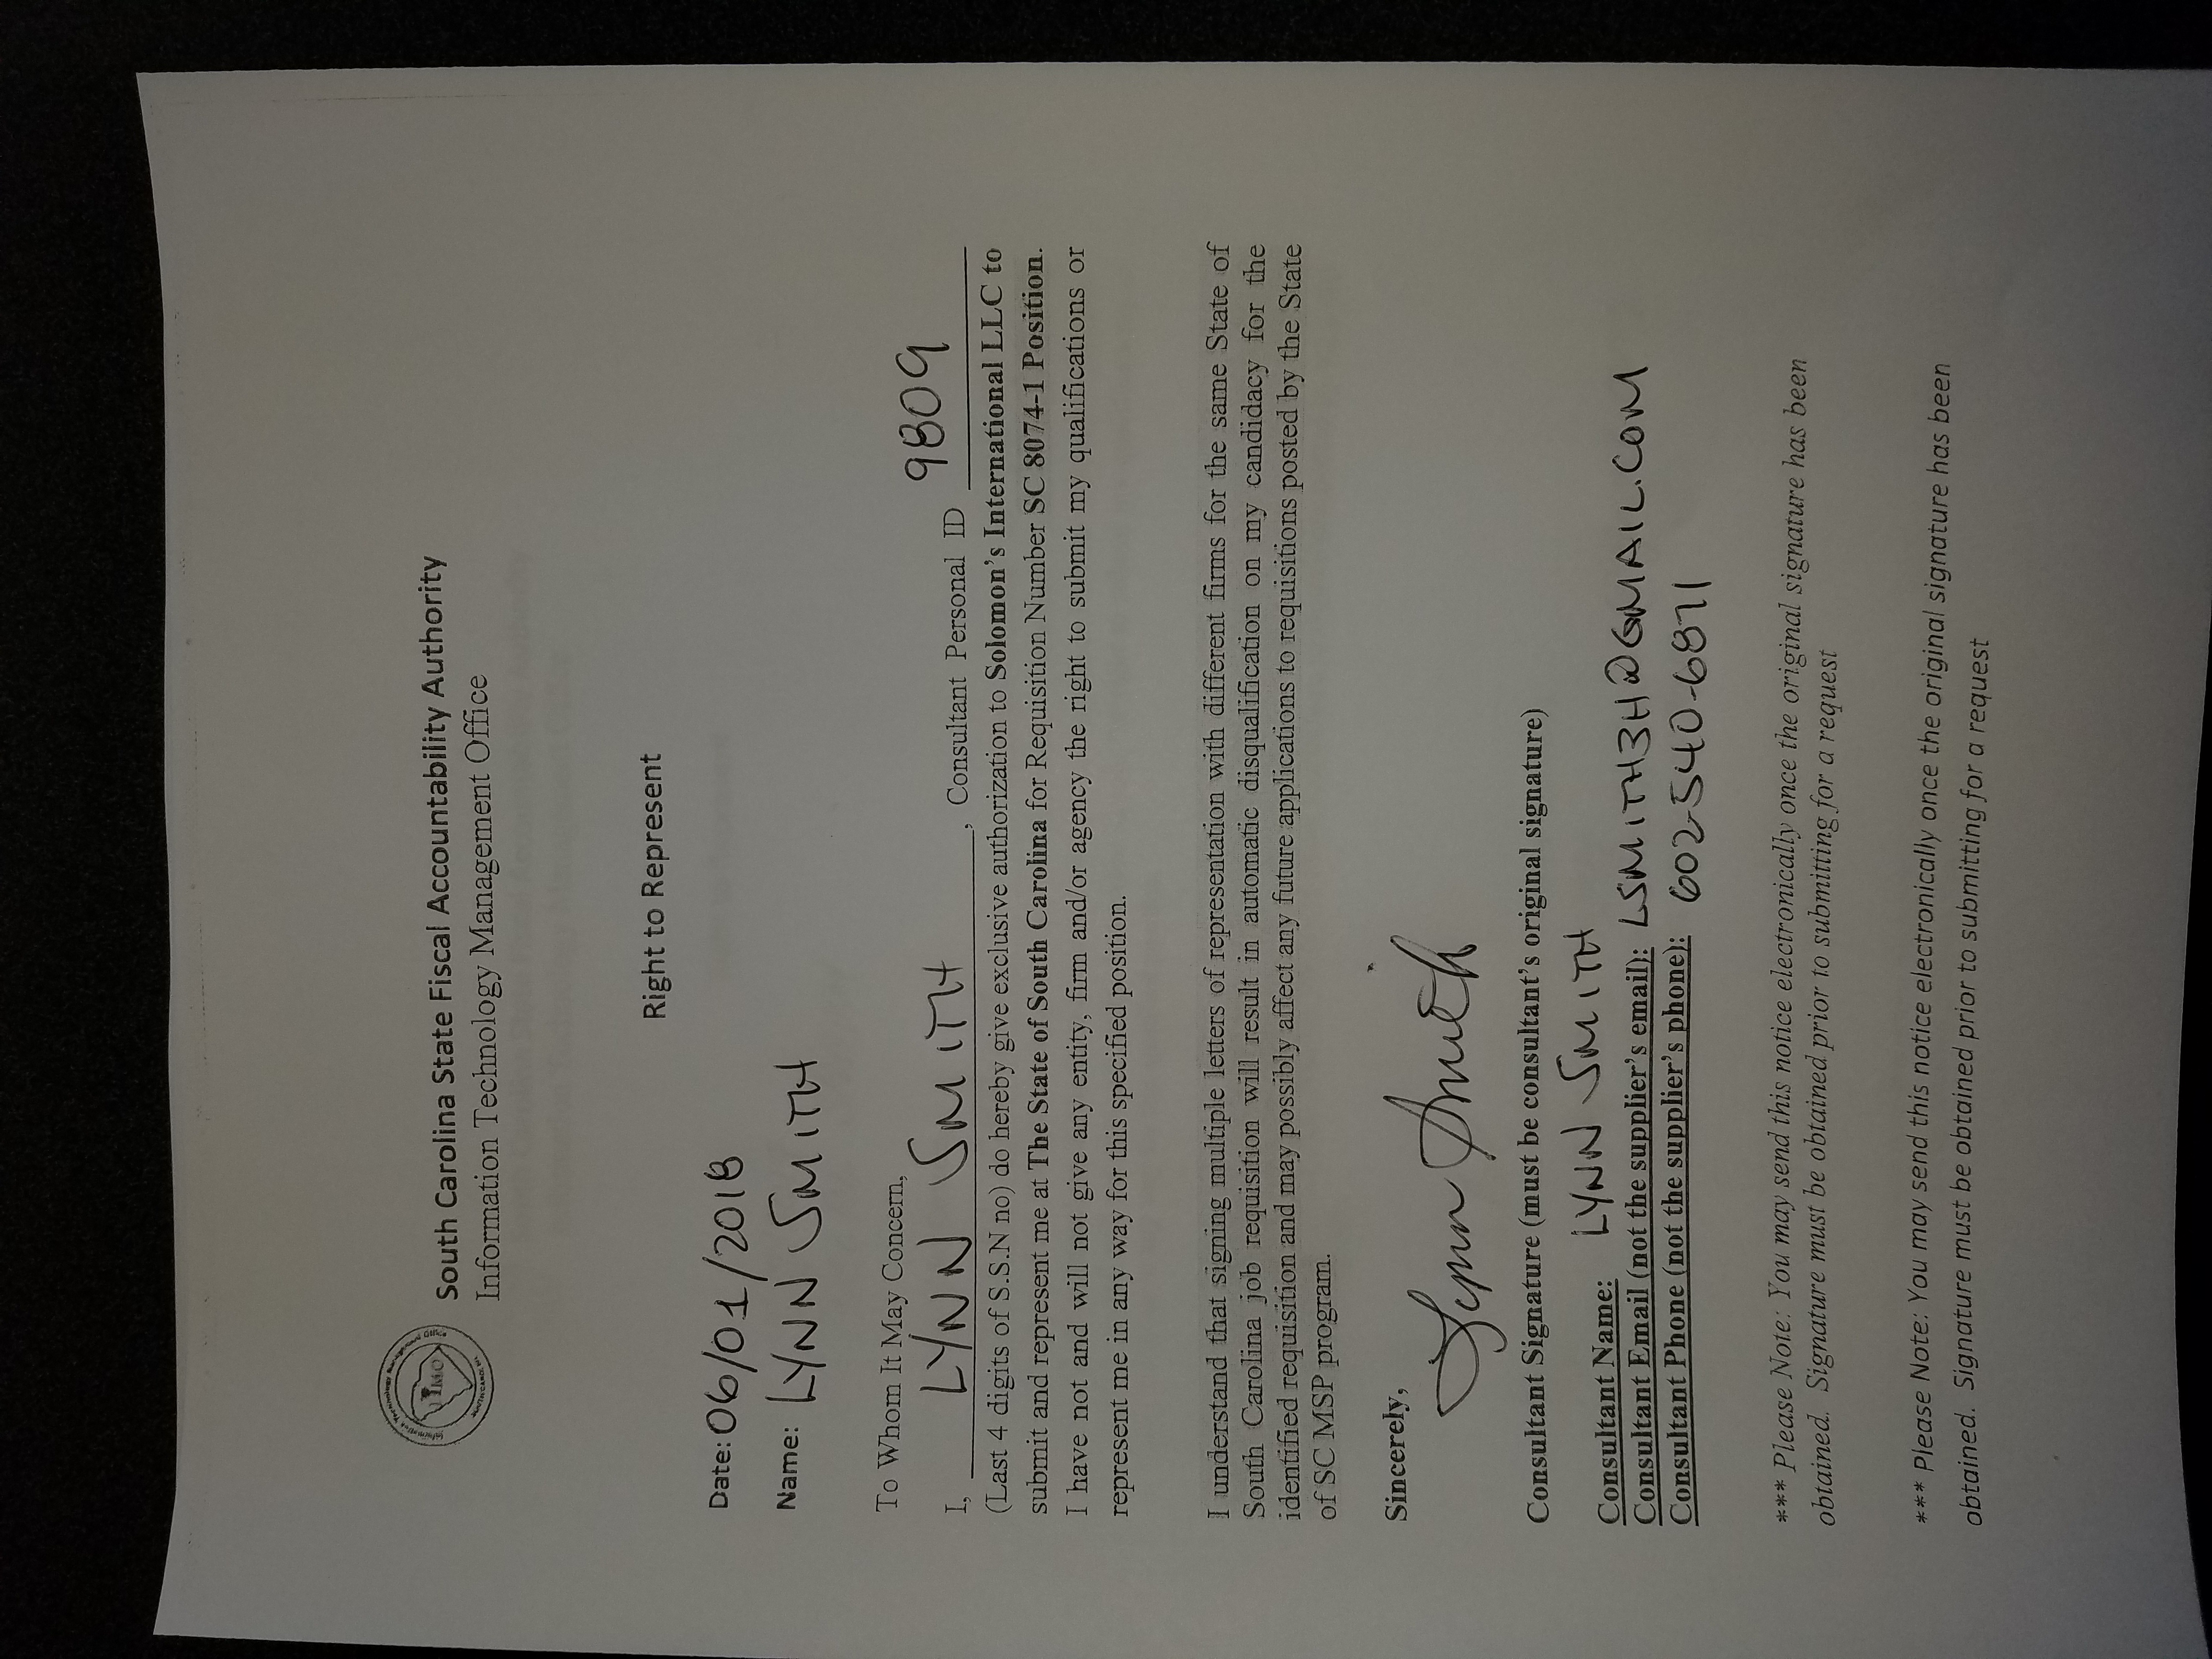 Information Technology Management Office
ITMO
SOUTH CAROLINA
South Carolina State Fiscal Accountability Authority
Information Technology Management Office
Right to Represent
Date: 06/01/2018
Name: LYNN SMITH
To Whom It May Concern,
I, LYNN SMITH, Consultant Personal ID 9809
(Last 4 digits of S.S.N no) do hereby give exclusive authorization to Solomon's International LLC to
submit and represent me at The State of South Carolina for Requisition Number SC 8074-1 Position.
I have not and will not give any entity, firm and/or agency the right to submit my qualifications or
represent me in any way for this specified position.
I understand that signing multiple letters of representation with different firms for the same State of
South Carolina job requisition will result in automatic disqualification on my candidacy for the
identified requisition and may possibly affect any future applications to requisitions posted by the State
of SC MSP program.
Sincerely,
Lynn Smith
Consultant Signature (must be consultant's original signature)
Consultant Name: LYNN SMITH
Consultant Email (not the supplier's email): LSMITH3H@GMAIL.COM
Consultant Phone (not the supplier's phone): 602-540-6871
*** Please Note: You may send this notice electronically once the original signature has been
obtained. Signature must be obtained prior to submitting for a request
*** Please Note: You may send this notice electronically once the original signature has been
obtained. Signature must be obtained prior to submitting for a request